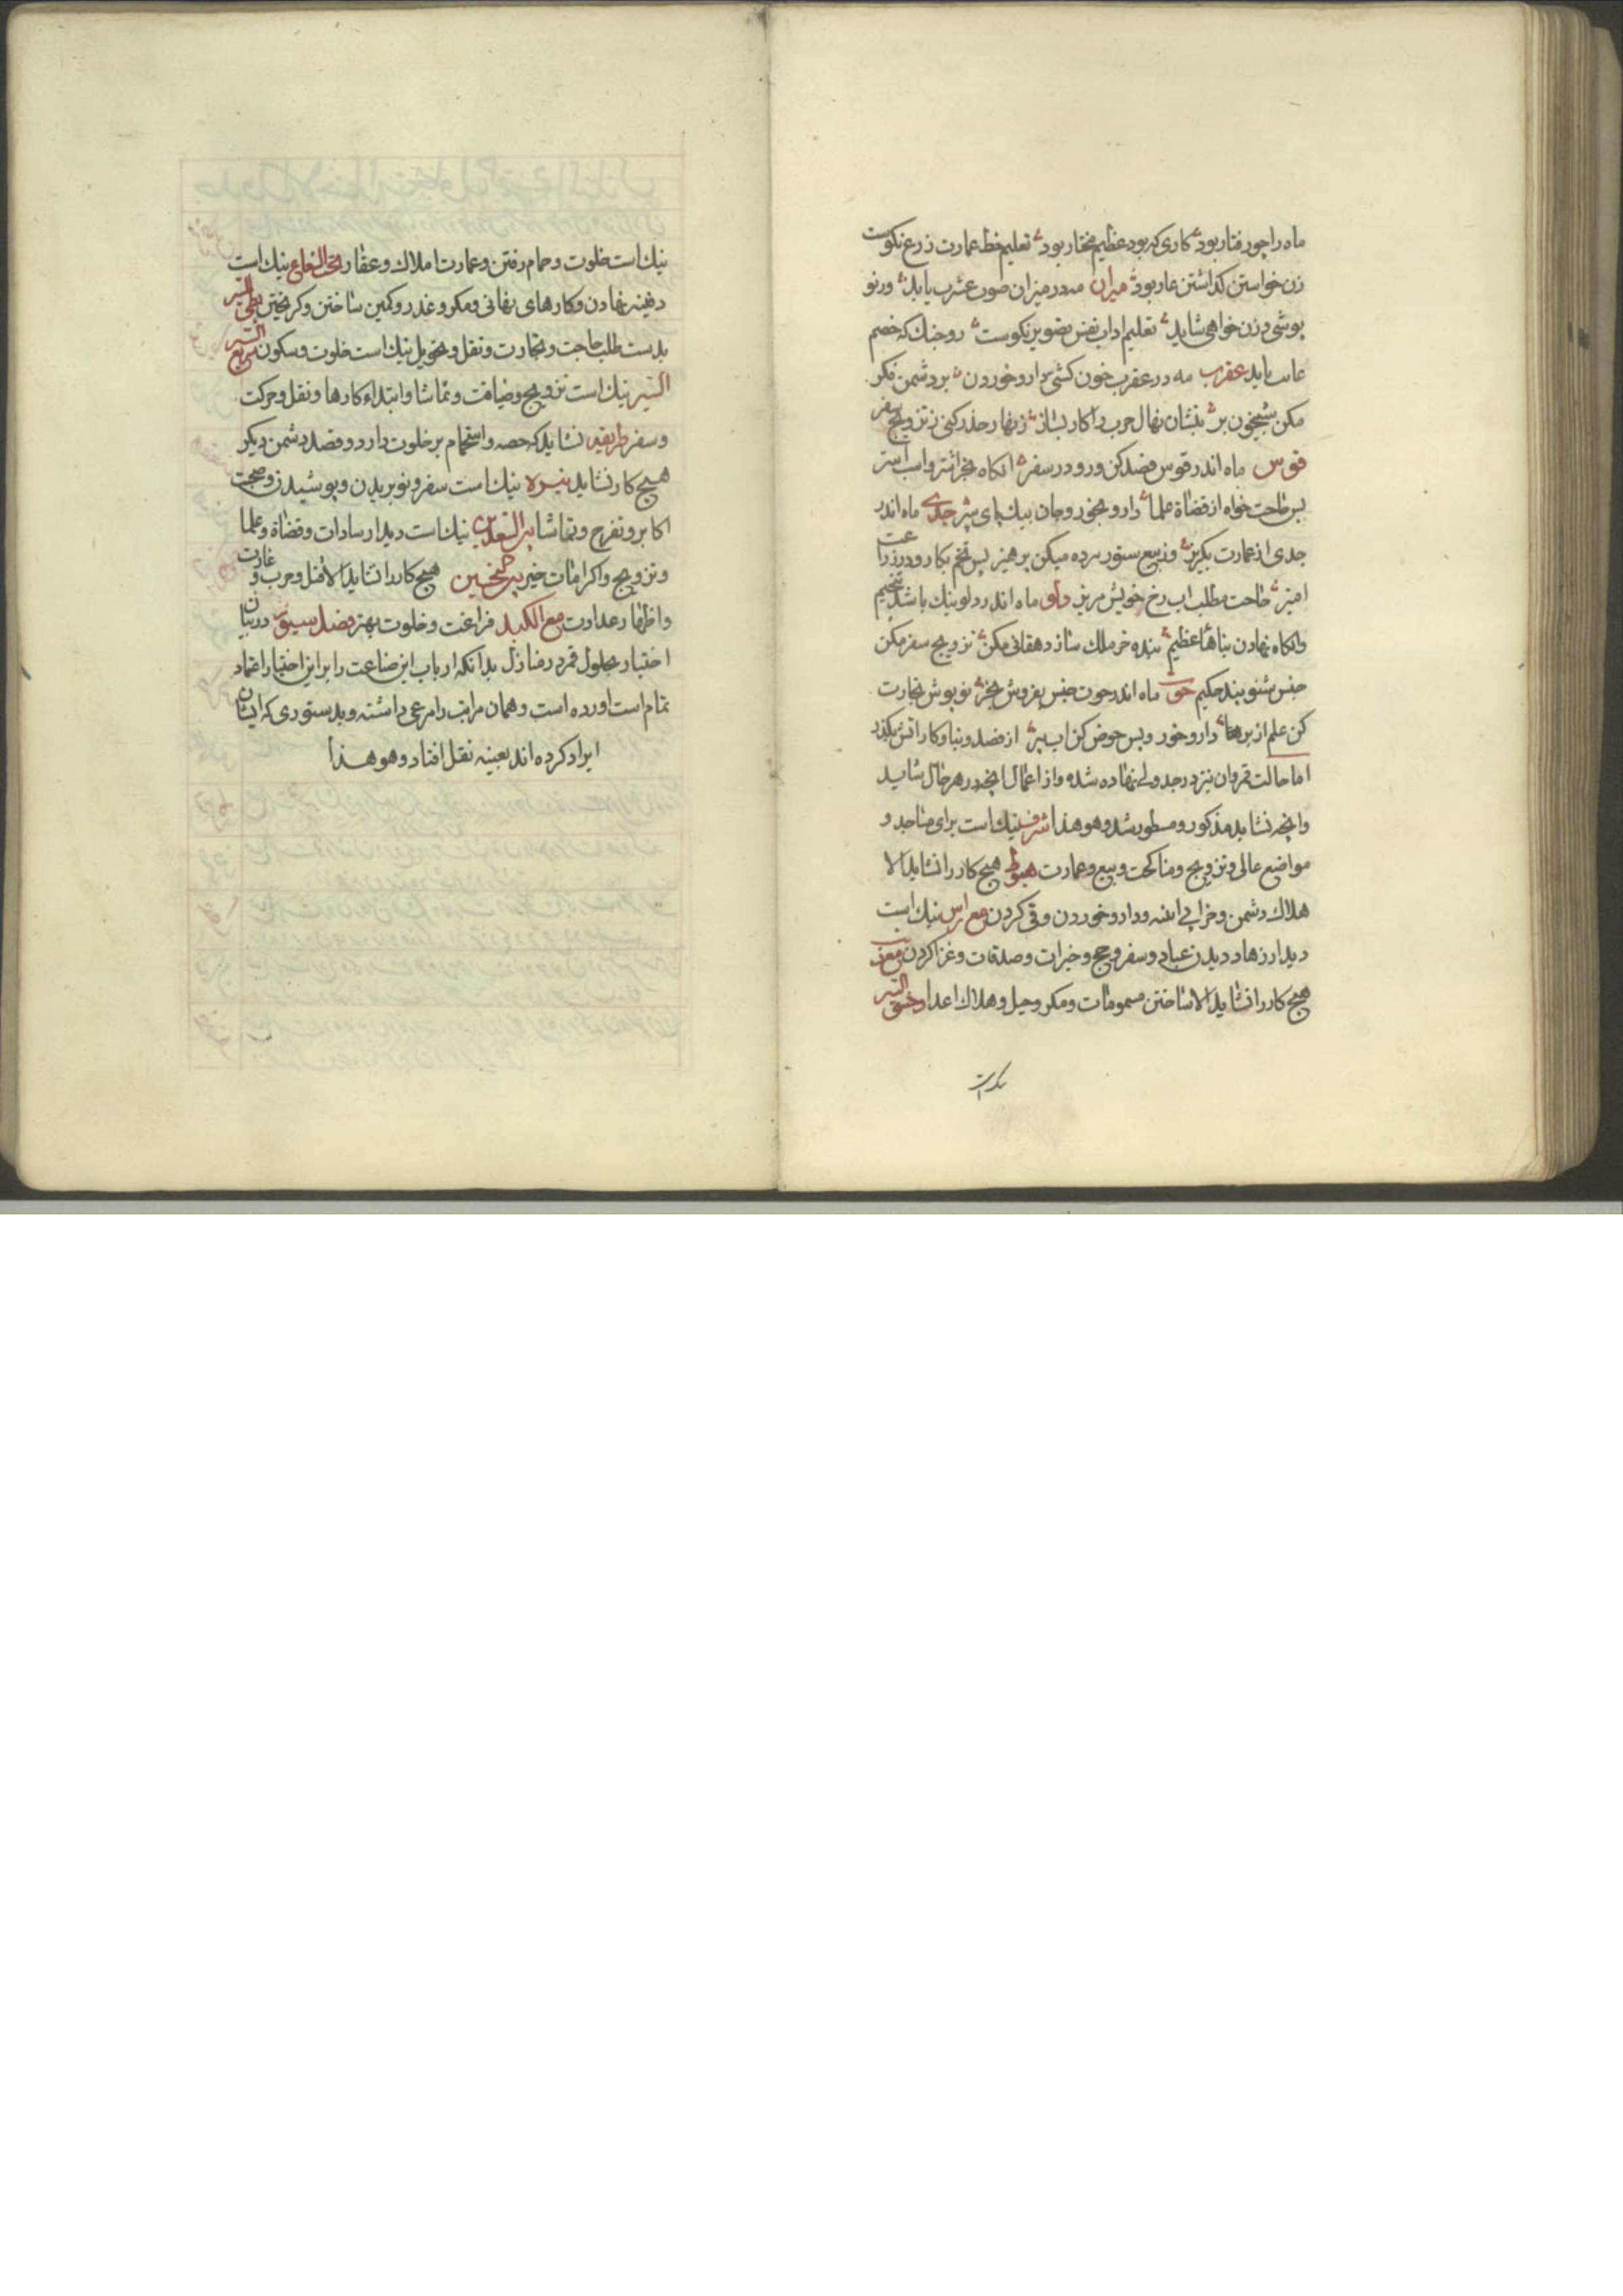 ماه را چو رفتار بود کاری که بود عظیم مختار بود تعلیم خط عمارت زرع نکوست
زن خواستن کذاشتن عار بود میزان مه در میزان صوت عشرت باید ور نو
پوشی و زن خواهی شاید تعلیم اداب نفس تصویر نکوست رو جنك که خصم
غایب اید عقرب مه در عقرب خون کشی دارو خوردن بر دشمن فکر
مکن شبیخون بر بنشان نهال حرب را کار بساز زنهار حذر کنی ز تزویج سفر
قوس ماه اندر قوس فصد کن ورو در سفر انکاه بخر اشتر و اسب استر
پس حاجت خواه از قضاة علما دارو بخور و جان بیك پای سپر جدی ماه اندر
جدی از عمارت بکریز وز بیع ستور برده میکن پرهیز پس تخم بکار و زرع را
امیز حاجت مطلب اب رخ خویش مریز دلو ماه اندر دلو نیك باشد تنجیم
وانکاه نهادن بناهاء عظیم بنده خر ملك ساز دهقانی مکن تزویج سفر مکن
جنس شنو پند حکیم حوت ماه اندر حوت جنس بفروش بخر نو پوش تجارت
کن علم از بر دارو خور و پس حوض کن اب ببر از فصد و بنا و کار اتش بکذر
اما حالت قمر وان نیز در جدولی نهاده شد و از اعمال انچه در هر حال شاید
وانچه نشاید مذکور و مسطور شد وهو هذا شرف نیك است برای مساجد و
مواضع عالی و تزویج و مناکحت و بیع و عمارت هبوط هیچ کار را نشاید الا
هلاك دشمن و خرابی ابنیه و دارو خوردن و قی کردن مع راس نیك است
دیدار زهاد و دیدن عباد و سفر و حج و خیرات و صدقات و غزا کردن مع ذنب
هیچ کار را نشاید الا ساختن مسمومات و مکر و حیل و هلاك اعدا
نیك است
نیك است خلوت و حمام رفتن و عمارت املاك و عقار تحت الشعاع نیك است
دفینه نهادن و کارهای نهانی و مکر و غدر و کمین ساختن و کریختن بطی السیر
بدست طلب حاجت و تجارت و نقل و تحویل نیك است خلوت و سکون سریع
السیر نیك است تزویج و ضیافت و تماشا و ابتداء کارها و نقل و حرکت
و سفر طریقه نشاید که حصه و استحمام بر خلوت دارد و قصد دشمن دیکر
هیچ کار نشاید نیره نیك است سفر و نو بریدن و پوشیدن و صحبت
اکابر و تفرج و تماشا بین السعدین نیك است دیدار سادات و قضاة و علما
و تزویج و اکرامات خیر بین النحسین هیچ کار را نشاید الا قتل و حرب و غارت
و اظهار عداوت مع الکید فراغت و خلوت بهتر فصل سیوم در بیان
اختیار بحلول قمر در منازل بدانکه ارباب این صناعت را بر این اختیار اعتماد
تمام است اورده است و همان مراتب را مرعی داشته و بدستوری که ایشان
ایراد کرده اند بعینه نقل افتاد وهو هذا